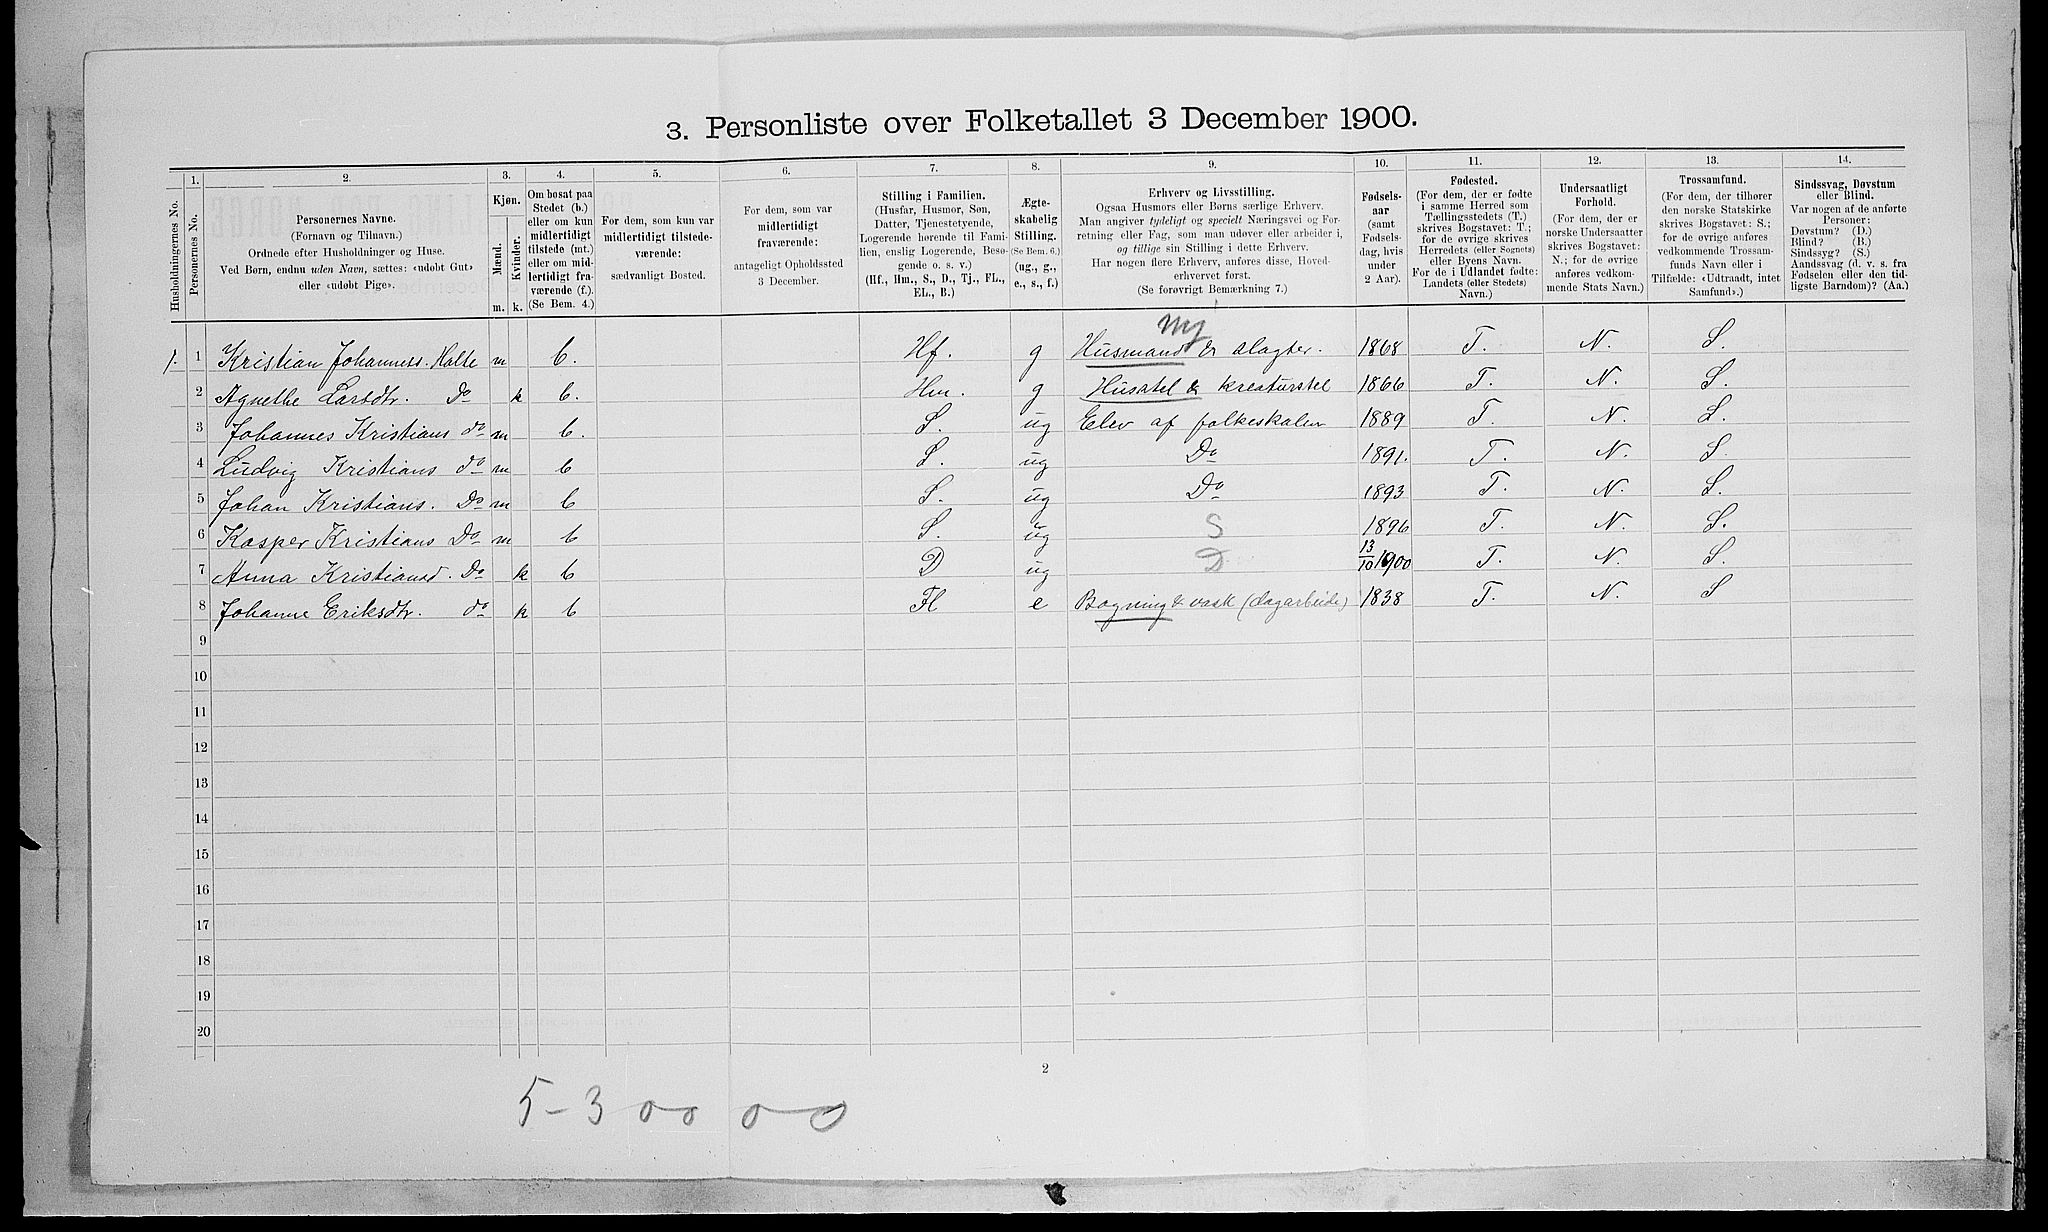 3. Personliste over Folketallet 3 December 1900.
Husholdningernes No.
1.
Personernes No.
2.
Personernes Navne.
(Fornavn og Tilnavn.)
Ordnede efter Husholdninger og Huse.
Ved Børn, endnu uden Navn, sættes: «udøbt Gut»
eller «udøbt Pige».
3.
Kjøn.
Mænd.
Kvinder.
m. k.
4.
Om bosat paa
Stedet (b.)
eller om kun
midlertidigt
tilstede (mt.)
eller om mid-
lertidigt fra-
værende (f.).
(Se Bem. 4.)
5.
For dem, som kun var
midlertidigt tilstede-
værende:
sædvanligt Bosted.
6.
For dem, som var
midlertidigt
fraværende:
antageligt Opholdssted
3 December.
7.
Stilling i Familien.
(Husfar, Husmor, Søn,
Datter, Tjenestetyende,
Logerende hørende til Fami-
lien, enslig Logerende, Besø-
gende o. s. v.)
(Hf., Hm., S., D., Tj., FL.,
EL., B.)
8.
Ægte-
skabelig
Stilling.
(Se Bem. 6.)
(ug., g.,
e., s., f.)
9.
Erhverv og Livsstilling.
Ogsaa Husmors eller Børns særlige Erhverv.
Man angiver tydeligt og specielt Næringsvei og For-
retning eller Fag, som man udøver eller arbeider i,
og tillige sin Stilling i dette Erhverv.
Har nogen flere Erhverv, anføres disse, Hoved-
erhvervet først.
(Se forøvrigt Bemærkning 7.)
10.
Fødsels-
aar
(samt
Fødsels-
dag, hvis
under
2 Aar).
11.
Fødested.
(For dem, der er fødte
i samme Herred som
Tællingsstedets (T.)
skrives Bogstavet: T.;
for de øvrige skrives
Herredets (eller Sognets)
eller Byens Navn.
For de i Udlandet fødte:
Landets (eller Stedets)
Navn.)
12.
Undersaatligt
Forhold.
(For dem, der er
norske Undersaatter
skrives Bogstavet:
N.; for de øvrige
anføres vedkom-
mende Stats Navn.)
13.
Trossamfund.
(For dem, der tilhører
den norske Statskirke
skrives Bogstavet: S.;
for de øvrige anføres
vedkommende Trossam-
funds Navn eller i
Tilfælde: «Udtraadt, intet
Samfund».)
14.
Sindssvag, Døvstum
eller Blind.
Var nogen af de anførte
Personer:
Døvstum? (D.)
Blind? (B.)
Sindssyg? (S.)
Aandssvag (d. v. s. fra
Fødselen eller den tid-
ligste Barndom)? (Aa.)
1. 1 Kristian Johanness. Halte m b. Hf. g Husmand & slagter. 1868 T. N. S.
2 Agnethe Larsdtr. Do k b. Hm. g Husstel & kreaturstel 1866 T. N. S.
3 Johannes Kristians do m b. S. ug Elev af folkeskolen 1889 T. N. S.
4 Ludvig Kristians do m b S. ug Do 1891. T. N. S.
5 Johan Kristians. Do m b S. ug Do 1893 T. N. S.
6 Kasper Kristians Do m b S. ug S 1896 T. N. S.
7 Anna Kristiansd. Do k b D ug D 13/10 1900 T. N. S.
8 Johanne Eriksdtr. do k b Fl e Bagning & vask (dagarbeide) 1838 T. N. S
9
10
11
12
13
14
15
16
17
18
19
20
2
5-3 00 00